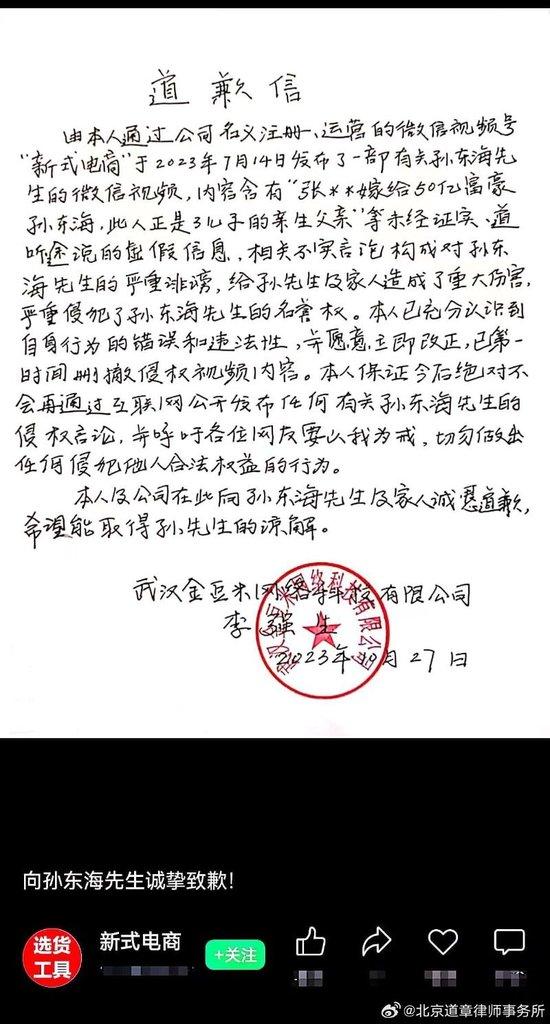 道歉信
由本人通过公司名义注册、运营的微信视频号
"新式电商"于2023年7月14日发布了一部有关孙东海先
生的微信视频,内容含有"张**嫁给50亿富豪
孙东海,此人正是3儿子的亲生父亲"等未经证实、道
听途说的虚假信息,相关不实言论构成对孙东
海先生的严重诽谤,给孙先生及家人造成了重大伤害,
严重侵犯了孙东海先生的名誉权。本人已充分认识到
自身行为的错误和违法性,并愿意立即改正,已第一
时间删撤侵权视频内容。本人保证今后绝对不
会再通过互联网公开发布任何有关孙东海先生的
侵权言论,并呼吁各位网友要以我为戒,切勿做出
任何侵犯他人合法权益的行为。
本人及公司在此向孙东海先生及家人诚恳道歉,
希望能取得孙先生的谅解。
武汉金豆米网络科技有限公司
李强生
2023年10月27日
向孙东海先生诚挚致歉!
选货
工具
新式电商
+关注
@北京道章律师事务所